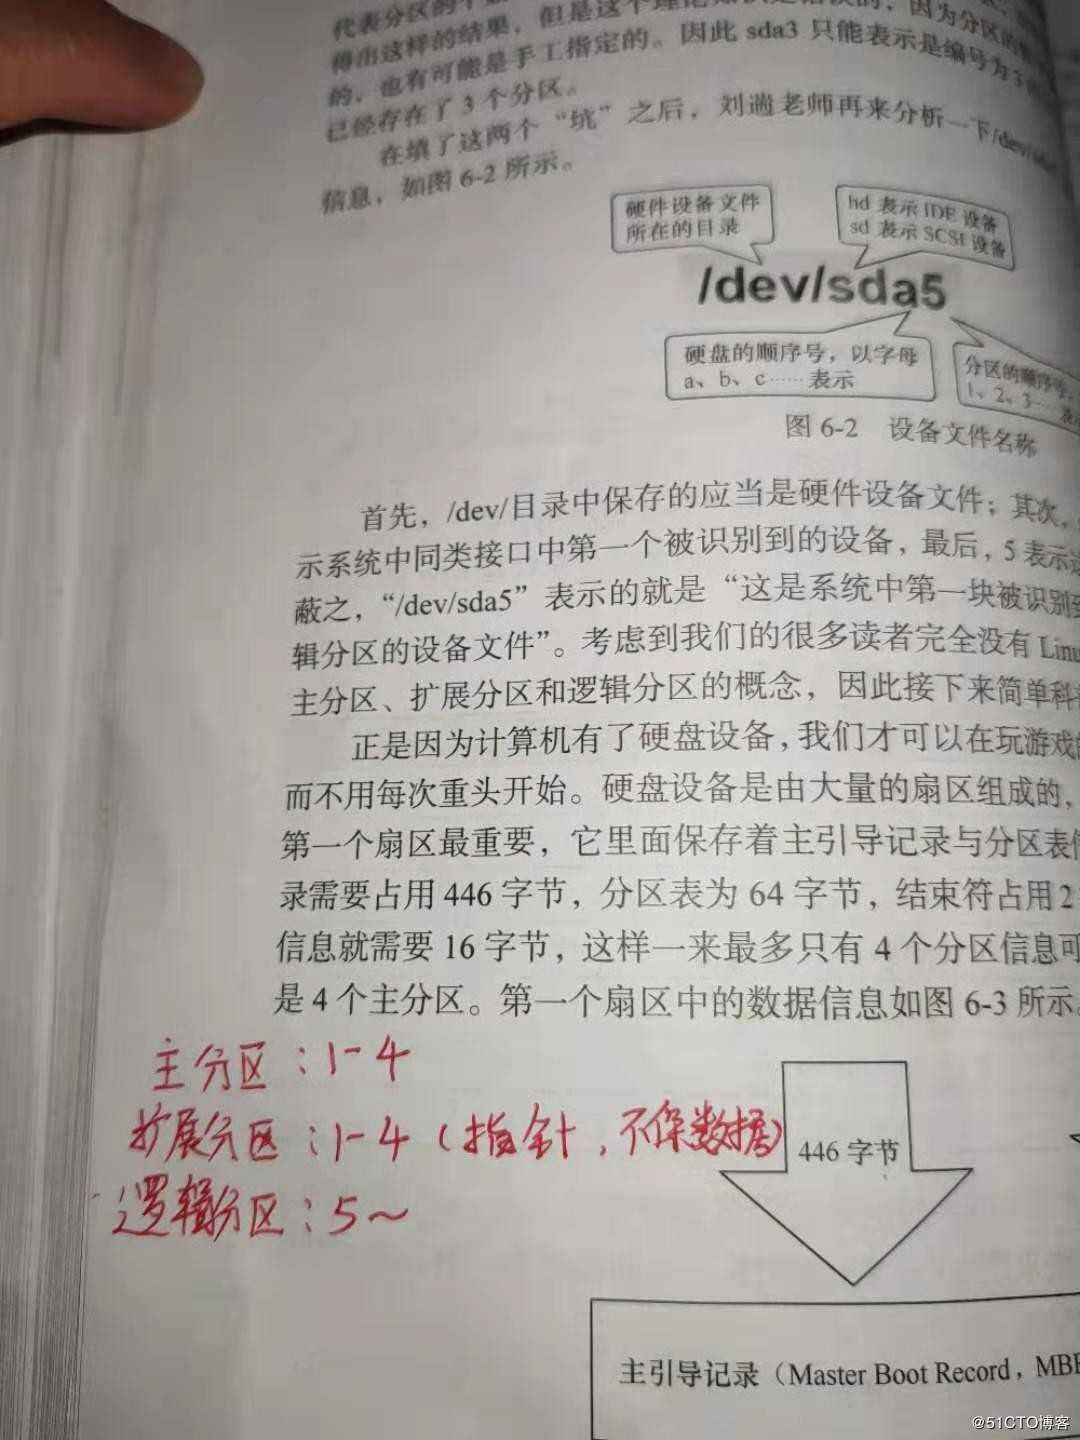 代表分区的个数
得出这样的结果，但是这个理论知识是错误的，因为分区的数
的，也有可能是手工指定的。因此 sda3 只能表示是编号为 3 的
已经存在了 3 个分区。
在填了这两个“坑”之后，刘遄老师再来分析一下/dev/sda
信息，如图 6-2 所示。
硬件设备文件
所在的目录
hd 表示 IDE 设备
sd 表示 SCSI 设备
/dev/sda5
硬盘的顺序号，以字母
a、b、c……表示
分区的顺序号，
1、2、3…
图 6-2 设备文件名称
首先，/dev/目录中保存的应当是硬件设备文件；其次，
示系统中同类接口中第一个被识别到的设备，最后，5 表示这
蔽之，“/dev/sda5”表示的就是“这是系统中第一块被识别到
辑分区的设备文件”。考虑到我们的很多读者完全没有 Linu
主分区、扩展分区和逻辑分区的概念，因此接下来简单科
正是因为计算机有了硬盘设备，我们才可以在玩游戏的
而不用每次重头开始。硬盘设备是由大量的扇区组成的，
第一个扇区最重要，它里面保存着主引导记录与分区表信
录需要占用 446 字节，分区表为 64 字节，结束符占用 2
信息就需要 16 字节，这样一来最多只有 4 个分区信息可
是 4 个主分区。第一个扇区中的数据信息如图 6-3 所示。
主分区：1-4
扩展分区：1-4（指针，不保数据）
逻辑分区：5～
446 字节
主引导记录（Master Boot Record，MB
@51CTO博客